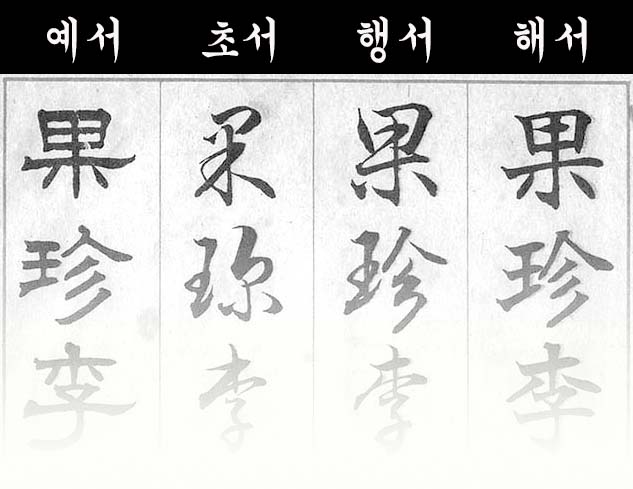 예서 초서 행서 해서
果 果 果 果
珍 珎 珍 珍
李 李 李 李